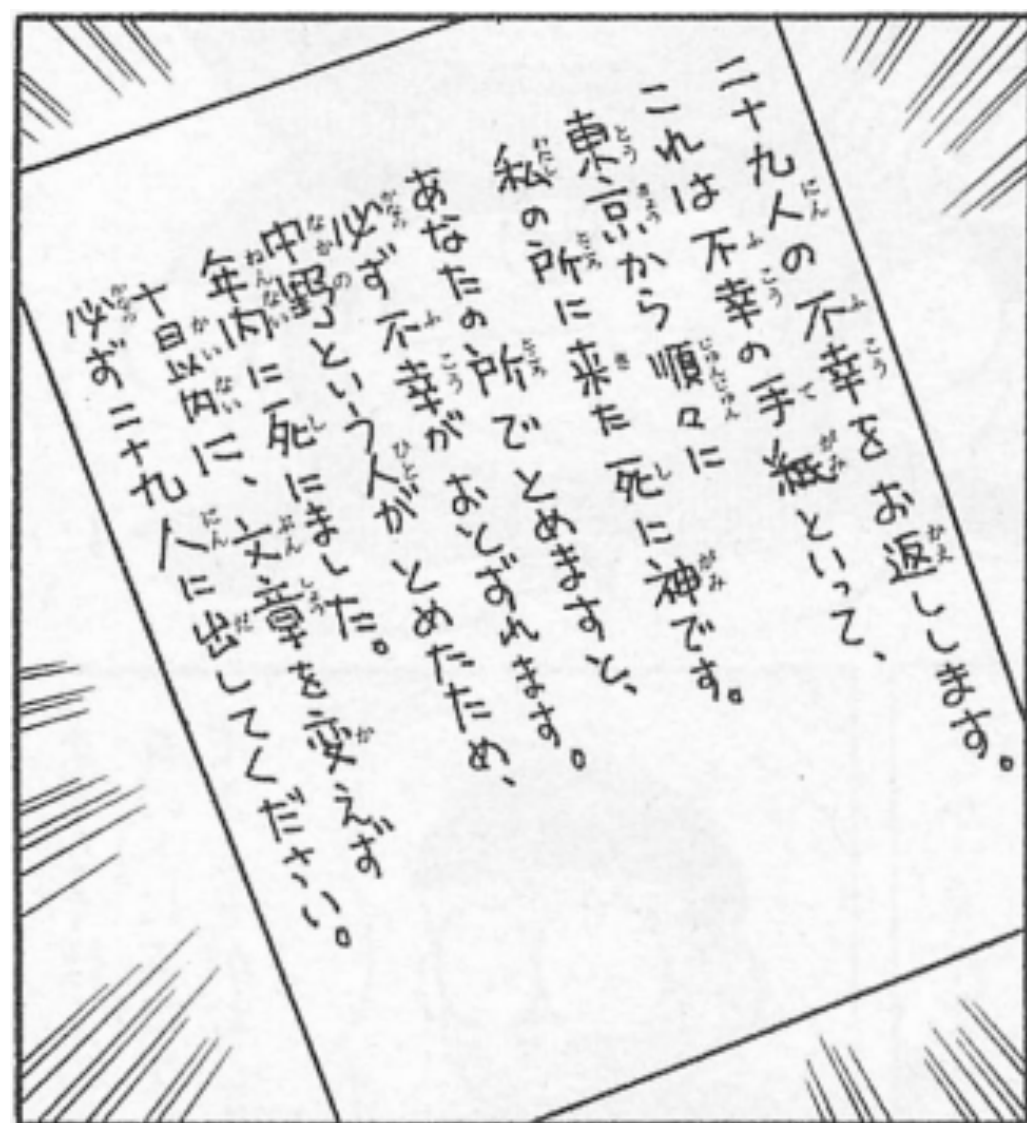 二十九人の不幸をお返しします。
これは不幸の手紙といって、
東京から順々に
私の所に来た死に神です。
あなたの所でとめますと、
必ず不幸がおとずれます。
中野という人がとめだため、
年内に死にました。
十日以内に、文章を変えず
必ず二十九人に出してください。